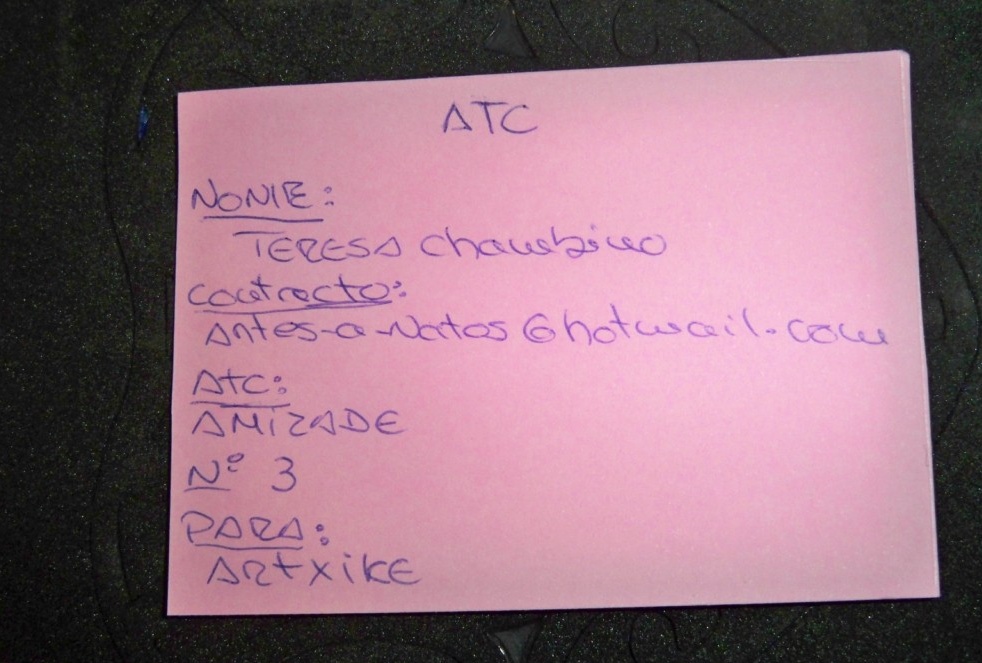 ATC
NOME:
TERESA Chambino
contacto:
Antes-a-Natos@hotmail.com
Atc:
AMIZADE
Nº 3
PARA:
ARtxiKE